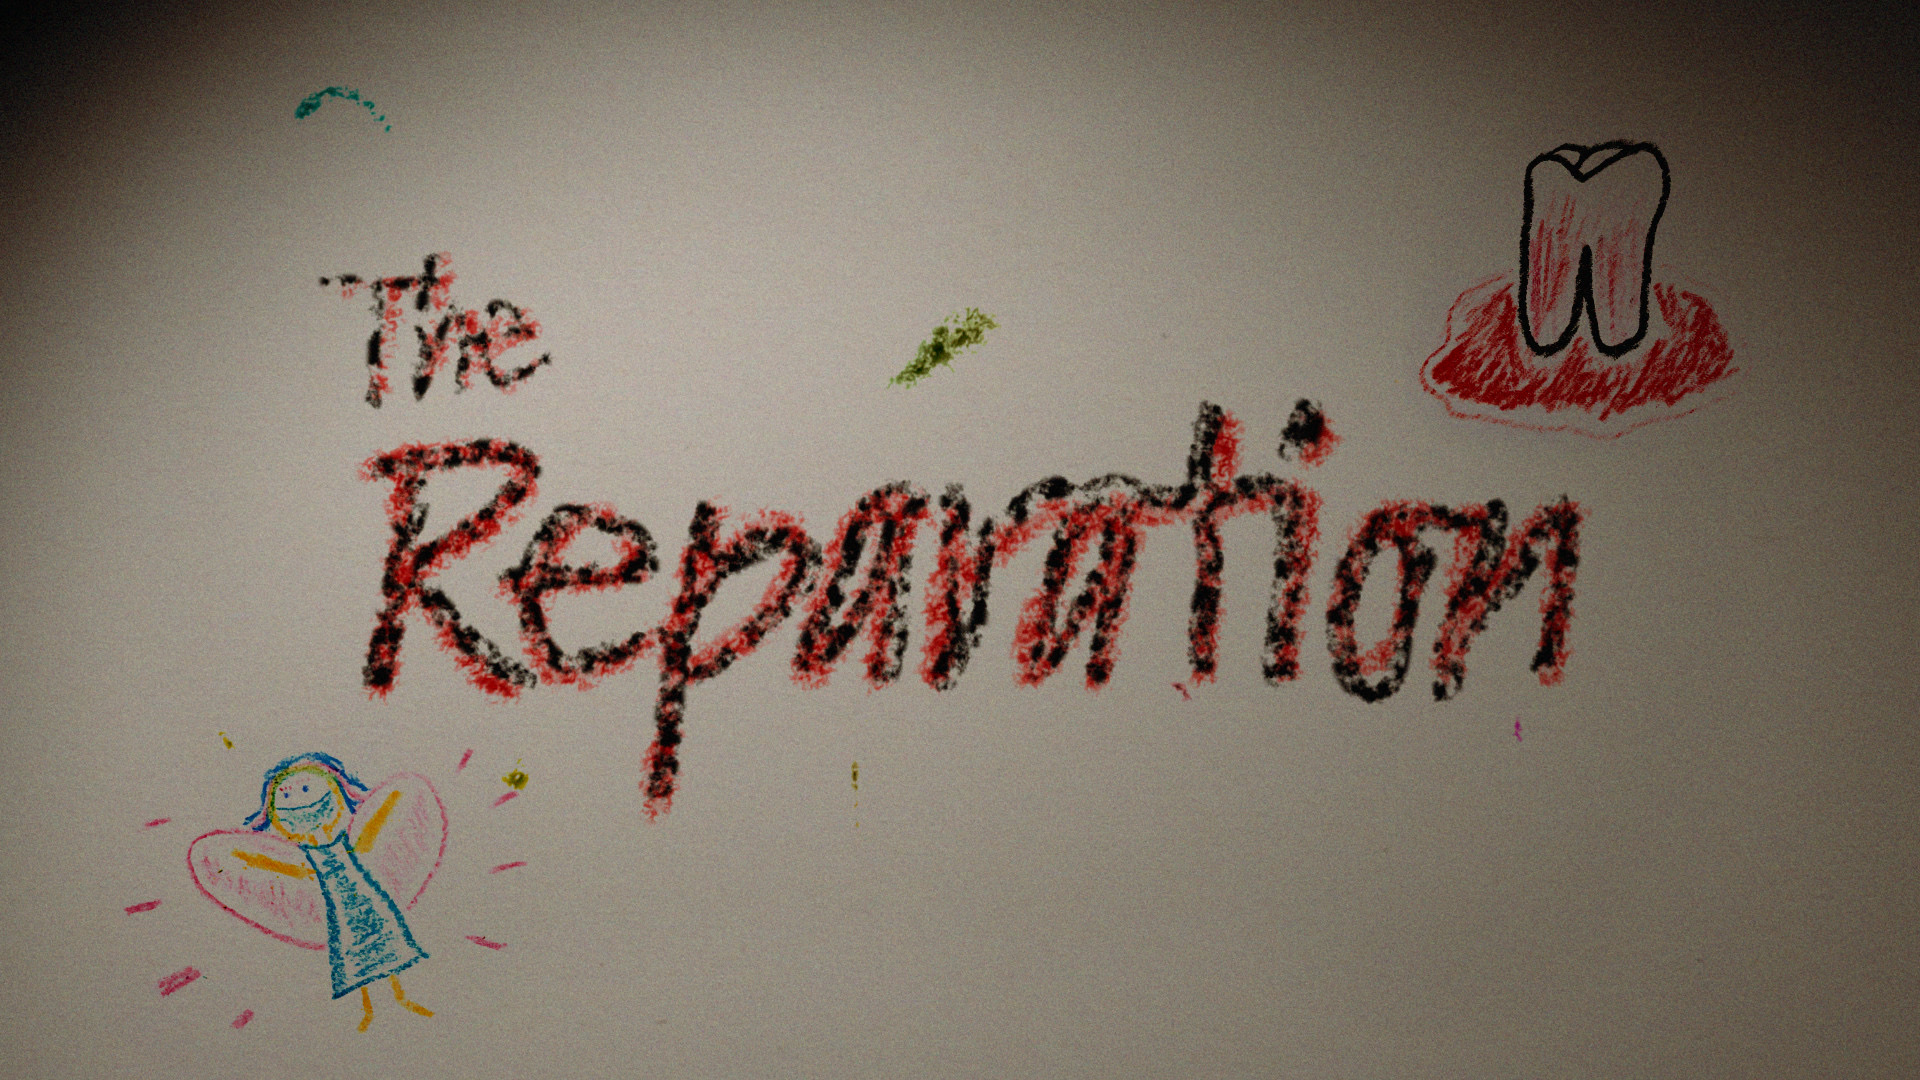 The
Reparation